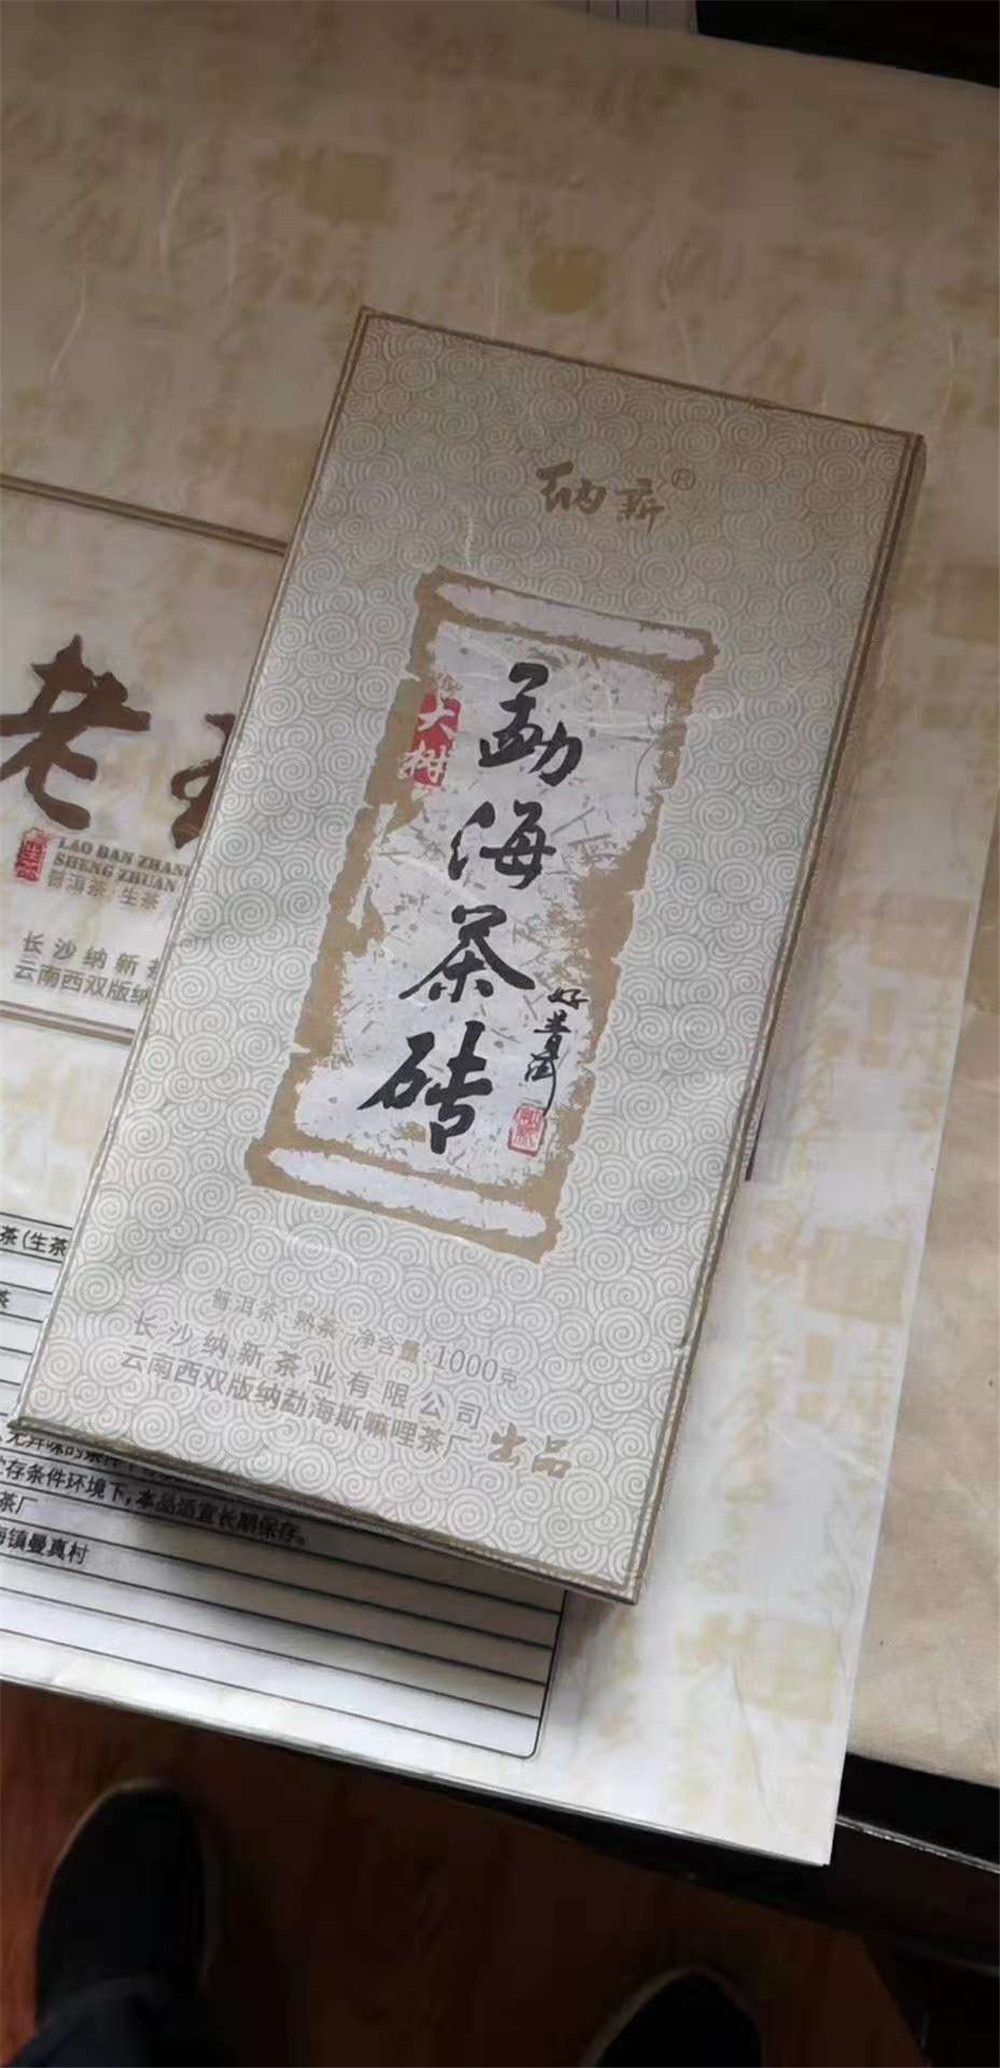 纳新®
大树
勐海茶砖
好普洱
普洱茶·熟茶 净含量:1000克
长沙纳新茶业有限公司
云南西双版纳勐海斯嘛哩茶厂 出品
老
LAO BAN ZHAN
SHENG ZHUAN
普洱茶 生茶
长沙纳新
云南西双版纳
茶(生茶
茶
贮存条件环境下,本品适宜长期保存。
茶厂
海镇曼真村